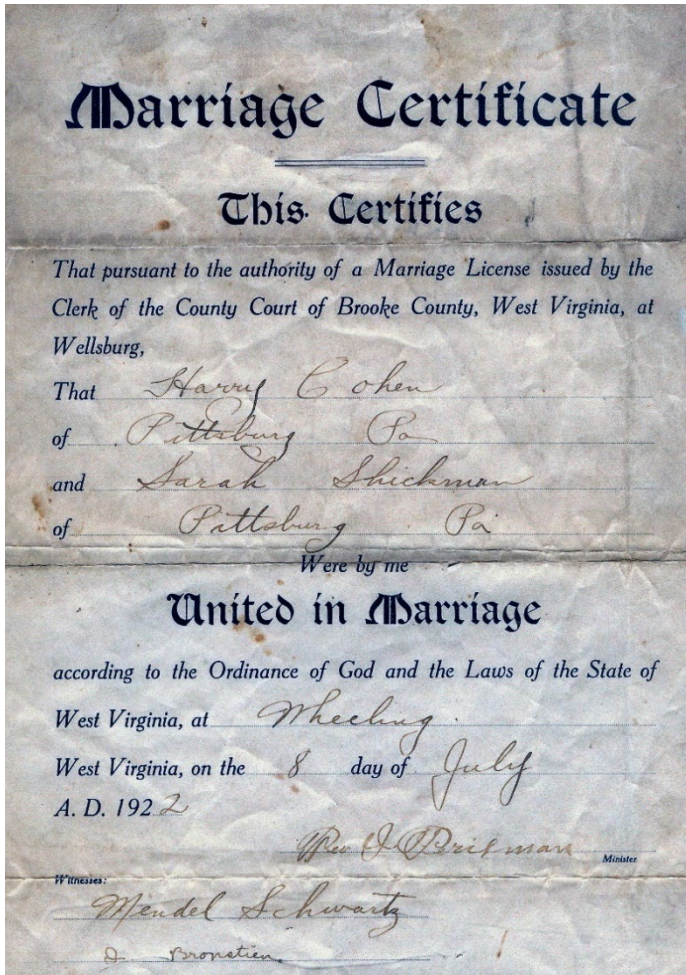 Marriage Certificate
This Certifies
That pursuant to the authority of a Marriage License issued by the
Clerk of the County Court of Brooke County, West Virginia, at
Wellsburg,
That Harry Cohen
of Pittsburg Pa
and Sarah Shickman
of Pittsburg Pa
Were by me
United in Marriage
according to the Ordinance of God and the Laws of the State of
West Virginia, at Wheeling.
West Virginia, on the 8 day of July
A. D. 1922
Rev I
Minister
Witnesses:
Mendel Schwartz
Bronstien